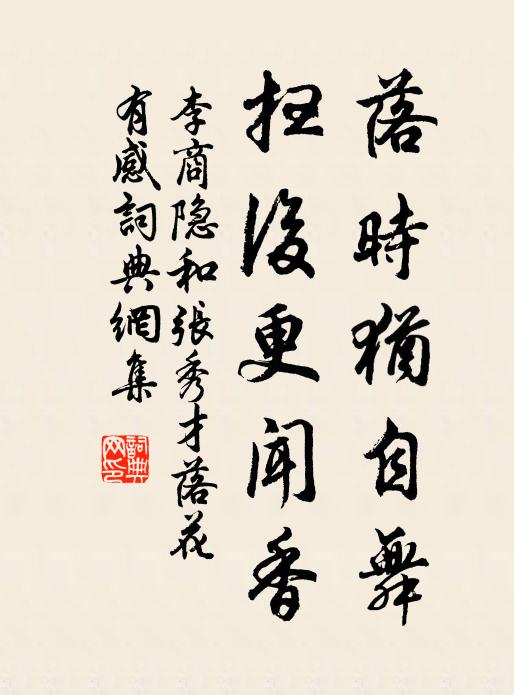 落時猶自舞
掃後更聞香
李商隐和張秀才落花
有感詞典網集
詞典
网印